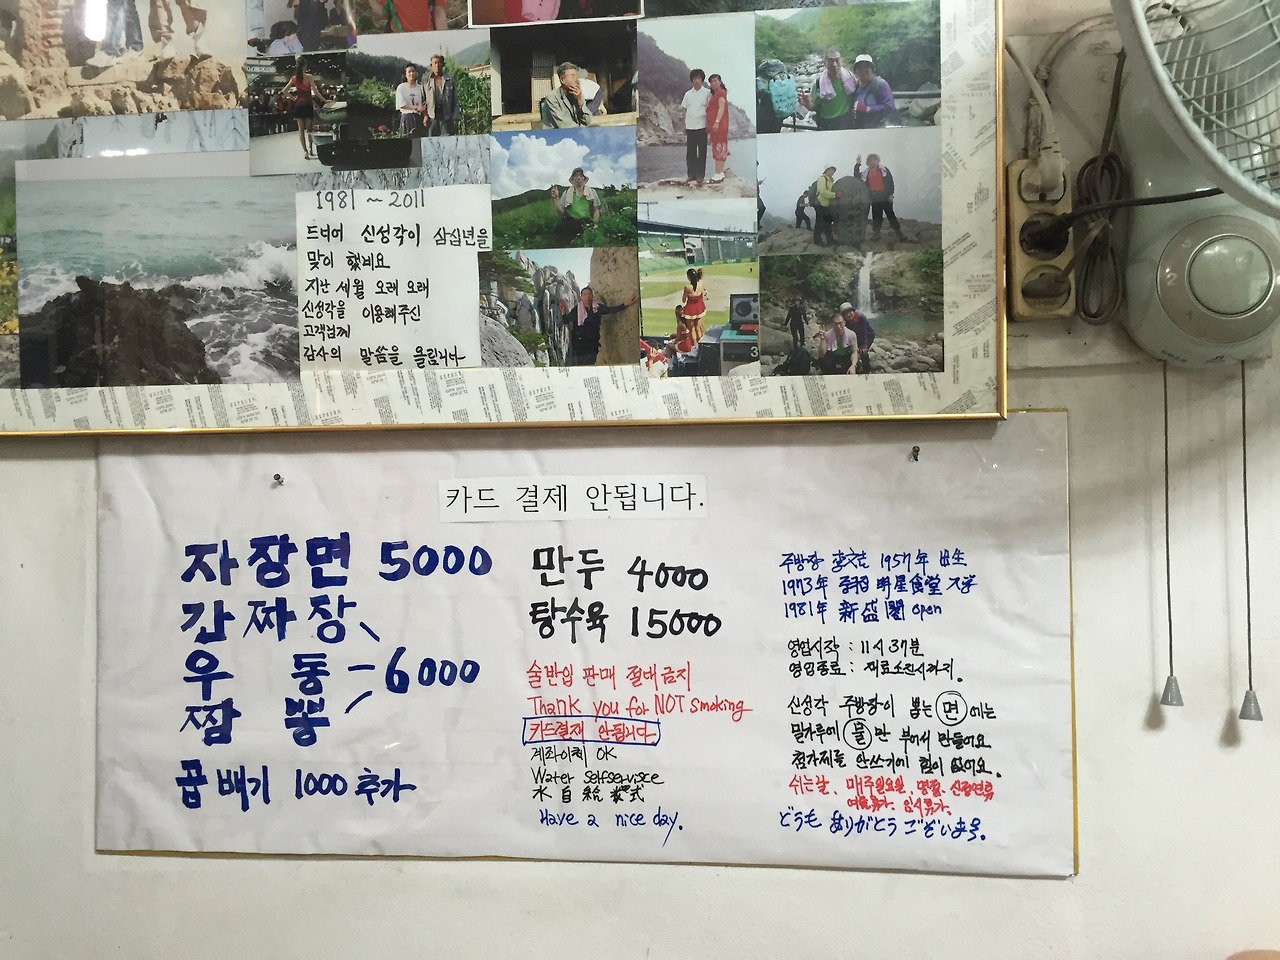 1981 ~ 2011
드디어 신성각이 삼십년을
맞이 했네요
지난 세월 오래 오래
신성각을 이용해주신
고객님께
감사의 말씀을 올립니다
카드 결제 안됩니다.
자장면 5000
간짜장
우동 - 6000
짬뽕
곱배기 1000 추가
만두 4000
탕수육 15000
술반입 판매 절대금지
Thank you for NOT smoking
카드결재 안됩니다.
계좌이체 OK
Water Selfservisce
水自給 式
Have a nice day.
주방장 李文吉 1957年 出生
1973年 明星食堂 入
1981年 新盛閣 open
영업시작 : 11시 37분
영업종료 : 재료소진시까지.
신성각 주방장이 뽑는 면에는
밀가루에 물만 부어서 만들어요
첨가제를 안쓰기에 힘이 없어요.
쉬는날, 매주일요일, 명절, 신정연휴
여름휴가, 임시휴가.
どうも ありがとう ございます。